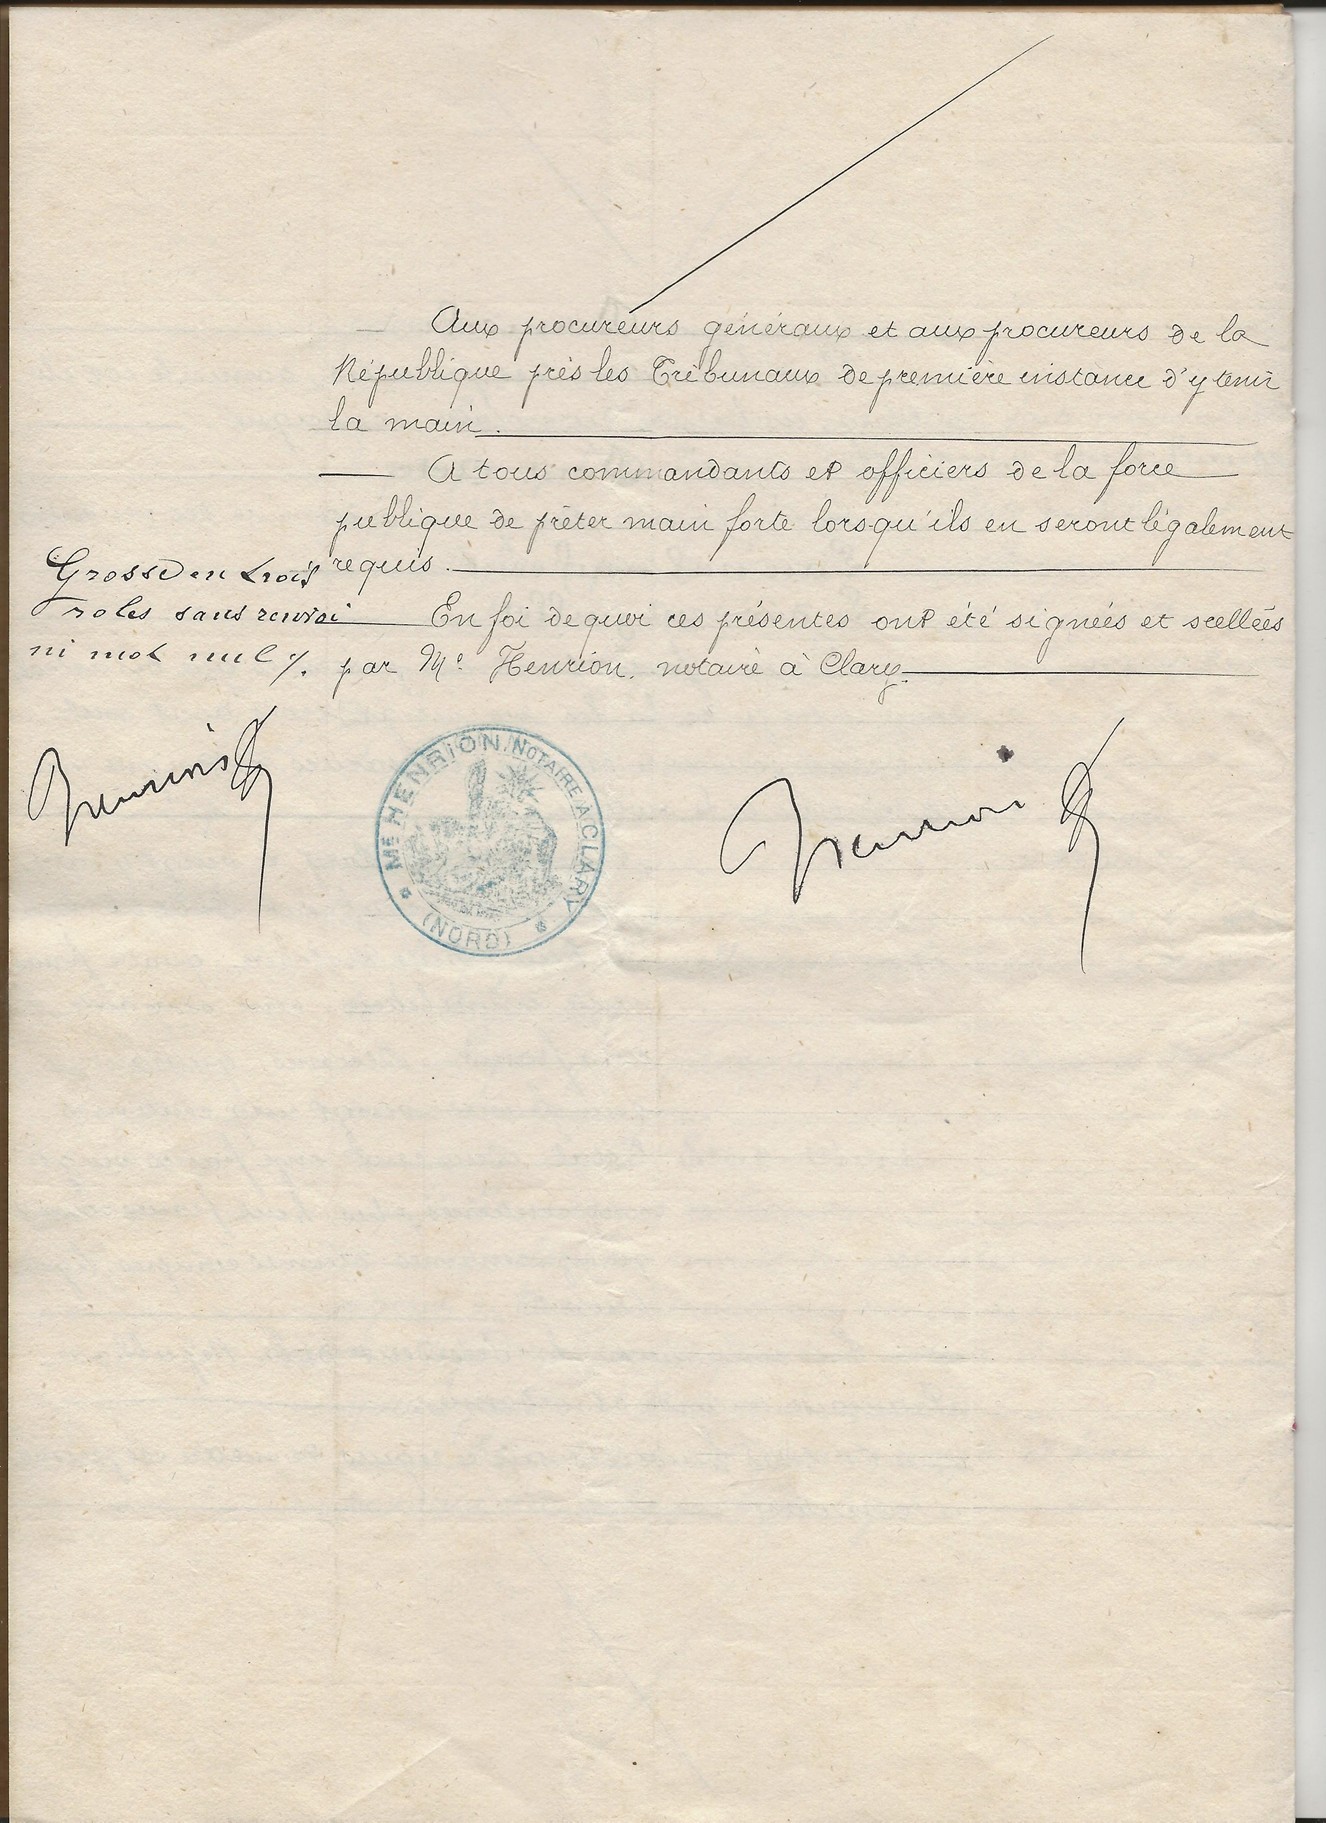 Aux procureurs généraux et aux procureurs de la
République près les Tribunaux de première instance d'y tenir
la main.
A tous commandants et officiers de la force
publique de prêter main forte lorsqu'ils en seront légalement
requis.
En foi de quoi ces présentes ont été signées et scellées
par Me Henrion, notaire à Clary.
Grosse en trois
roles sans renvoi
ni mot nul
Henrion
Me HENRION, NOTAIRE À CLARY
(NORD)
Henrion